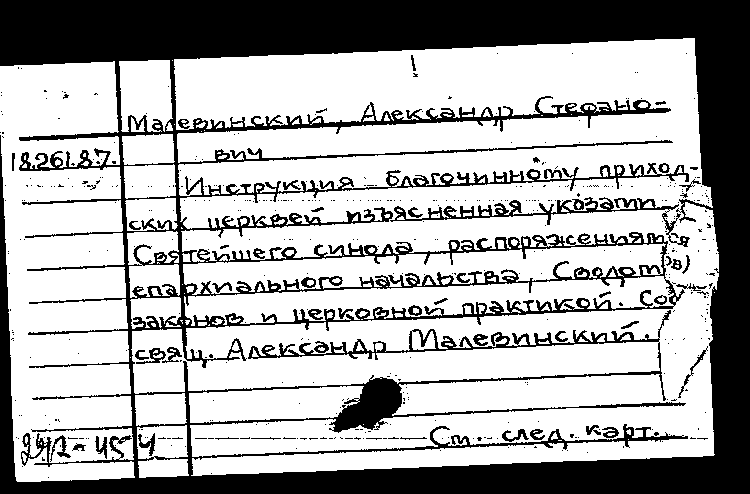 !
Малевинский, Александр Стефано-
18.261.8.7. вич
Инструкция благочинному приход-
ских церквей изъясненная указами
Святейшего синода, распоряжениями
епархиального начальства, Сводом
законов и церковной практикой. Сос
свящ. Александр Малевинский.
См. след. карт.